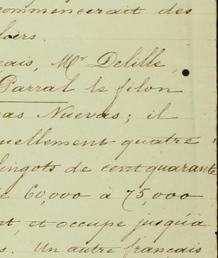 commencerait des
çais, Mr Delille,
Parral le filon
as Nuevas; il
uellement quatre
lingots de cent quarante
e 60,000 à 75,000
nt, et occupe jusqu'à
s. Un autre français